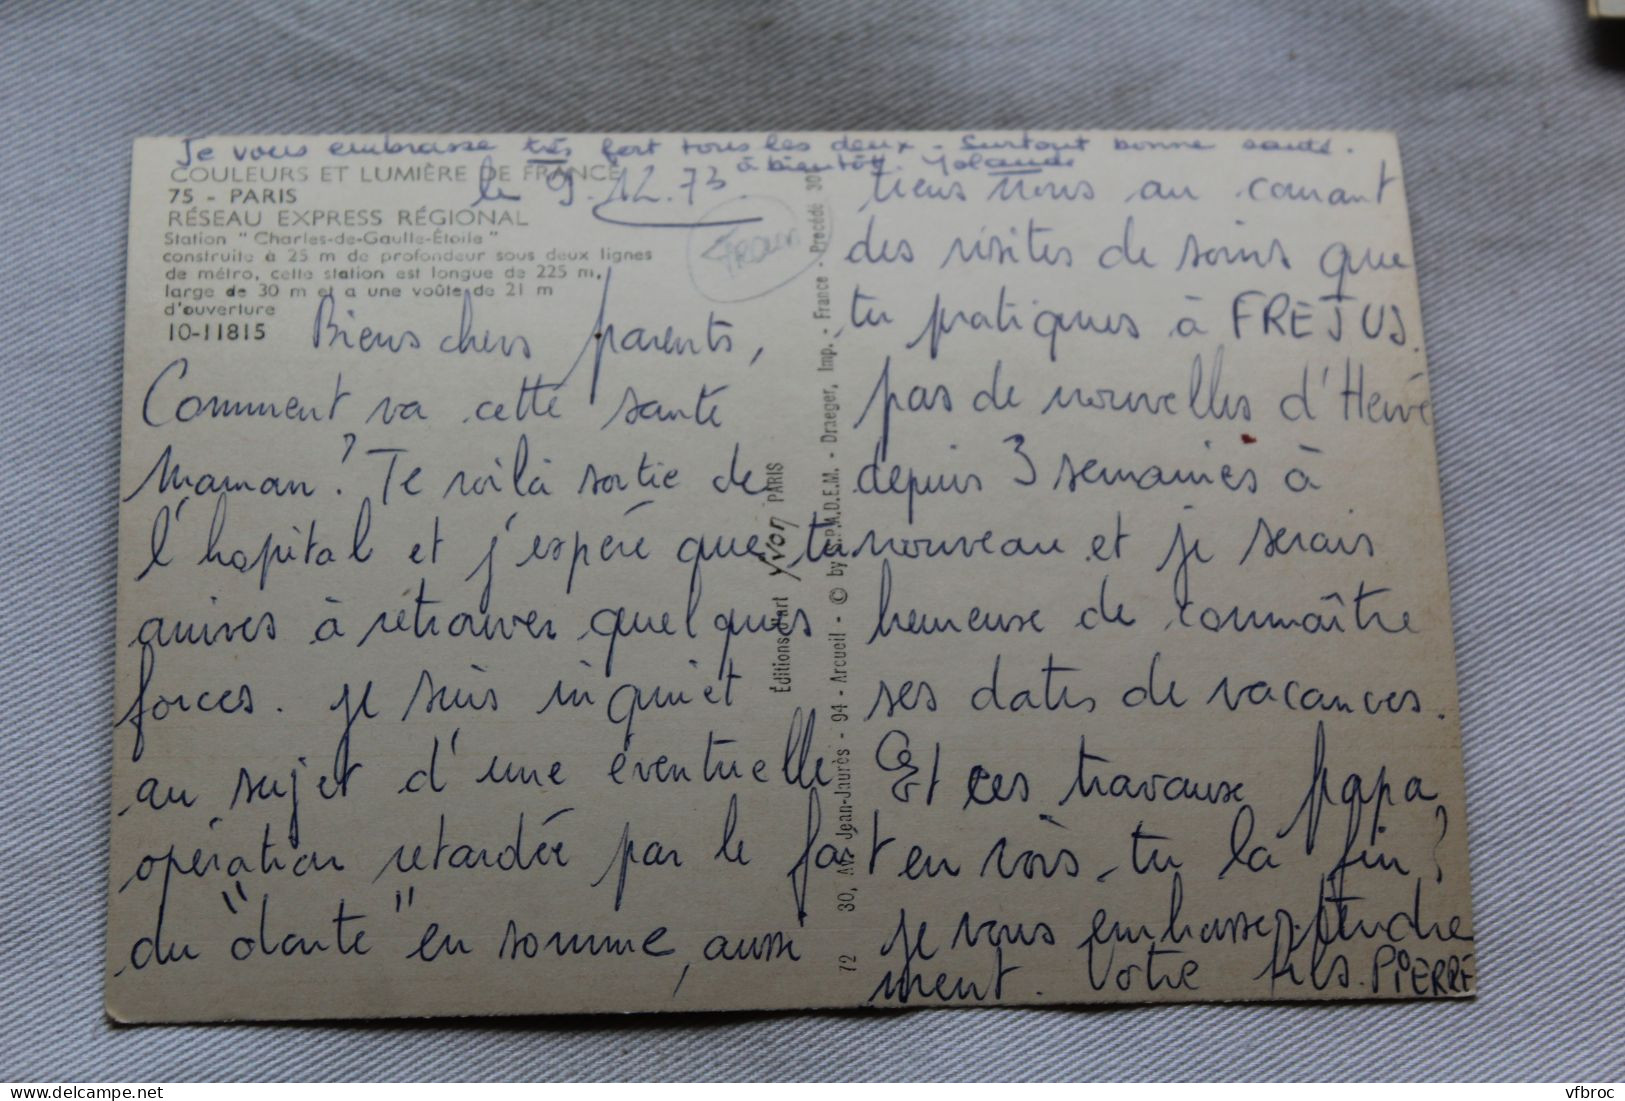 Je vous embrasse très fort tous les deux. Surtout bonne santé.
à bientôt. Yolande
COULEURS ET LUMIÈRE DE FRANCE
le 9.12.73.
75 - PARIS
RÉSEAU EXPRESS RÉGIONAL
Station "Charles-de-Gaulle-Étoile"
construite à 25 m de profondeur sous deux lignes
de métro, cette station est longue de 225 m,
large de 30 m et a une voûte de 21 m
d'ouverture
10-11815
Biens chers parents,
Comment va cette sante
Maman? Te voilà sortie de
l'hopital et j'espére que tu
arrives à retrouver quelques
forces. je suis inquiet
au sujet d'une éventuelle
opération retardée par le fait
du "doute" en somme, aussi
Éditions d'art Yvon PARIS
72 30, Av. Jean-Jaurès - 94 - Arcueil - © by S.P.A.D.E.M. - Draeger, Imp. - France - Procédé 30
tiens nous au courant
des visites de soins que
tu pratiques à FREJUS.
pas de nouvelles d'Hervé
depuis 3 semaines à
nouveau et je serais
heureuse de connaître
ses dates de vacances.
Et ces travaux papa
en vois-tu la fin?
je vous embrasse, tendre
ment. Votre fils. PIERRE
vfbroc